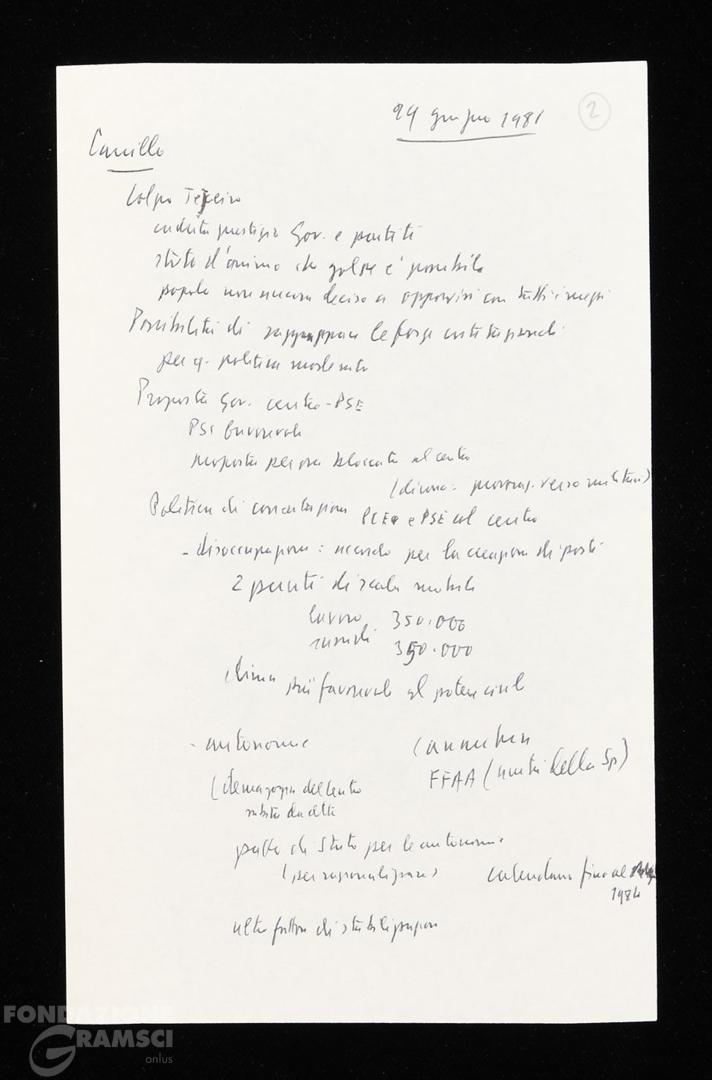 24 giugno 1981
2
Carrillo
Colpo Tejero
caduta prestigio Gov. e partiti
stato d'animo che golpe è possibile
popolo non ancora deciso a opporvisi con tutti i mezzi
Possibilità di raggruppare le forze costituzionali
per 1 politica moderata
Proposta Gov. centro-PSE
PSE favorevole
proposta per ora bloccata al centro
(diceva: provoc. verso militari)
Politica di concertazione PCE e PSE col centro
- disoccupazione: accordo per la creazione di posti
2 punti di scala mobile
lavoro 350.000
sussidi 350.000
clima più favorevole al potere civile
- autonomie
(demagogia del centro
subita da
FFAA (unità della Sp)
patto di Stato per le autonomie
(per razionalizzare)
calendario fino al
1984
altro fattore di stabilizzazione
FONDAZIONE
GRAMSCI
onlus